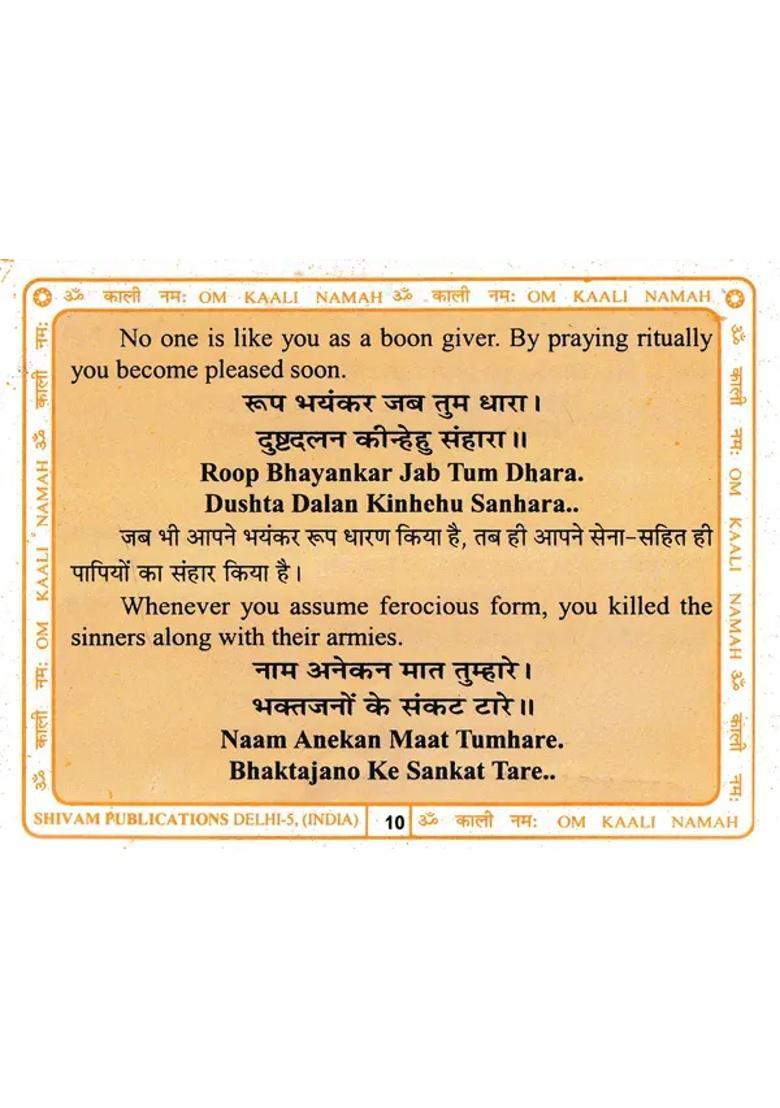 ॐ काली नमः OM KAALI NAMAH ॐ काली नमः OM KAALI NAMAH
No one is like you as a boon giver. By praying ritually
you become pleased soon.
रूप भयंकर जब तुम धारा।
दुष्टदलन कीन्हेहु संहारा॥
Roop Bhayankar Jab Tum Dhara.
Dushta Dalan Kinhehu Sanhara..
जब भी आपने भयंकर रूप धारण किया है, तब ही आपने सेना-सहित ही
पापियों का संहार किया है।
Whenever you assume ferocious form, you killed the
sinners along with their armies.
नाम अनेकन मात तुम्हारे।
भक्तजनों के संकट टारे॥
Naam Anekan Maat Tumhare.
Bhaktajano Ke Sankat Tare..
ॐ काली नमः OM KAALI NAMAH ॐ काली नमः
ॐ काली नमः OM KAALI NAMAH ॐ काली नमः
SHIVAM PUBLICATIONS DELHI-5, (INDIA) 10 ॐ काली नमः OM KAALI NAMAH